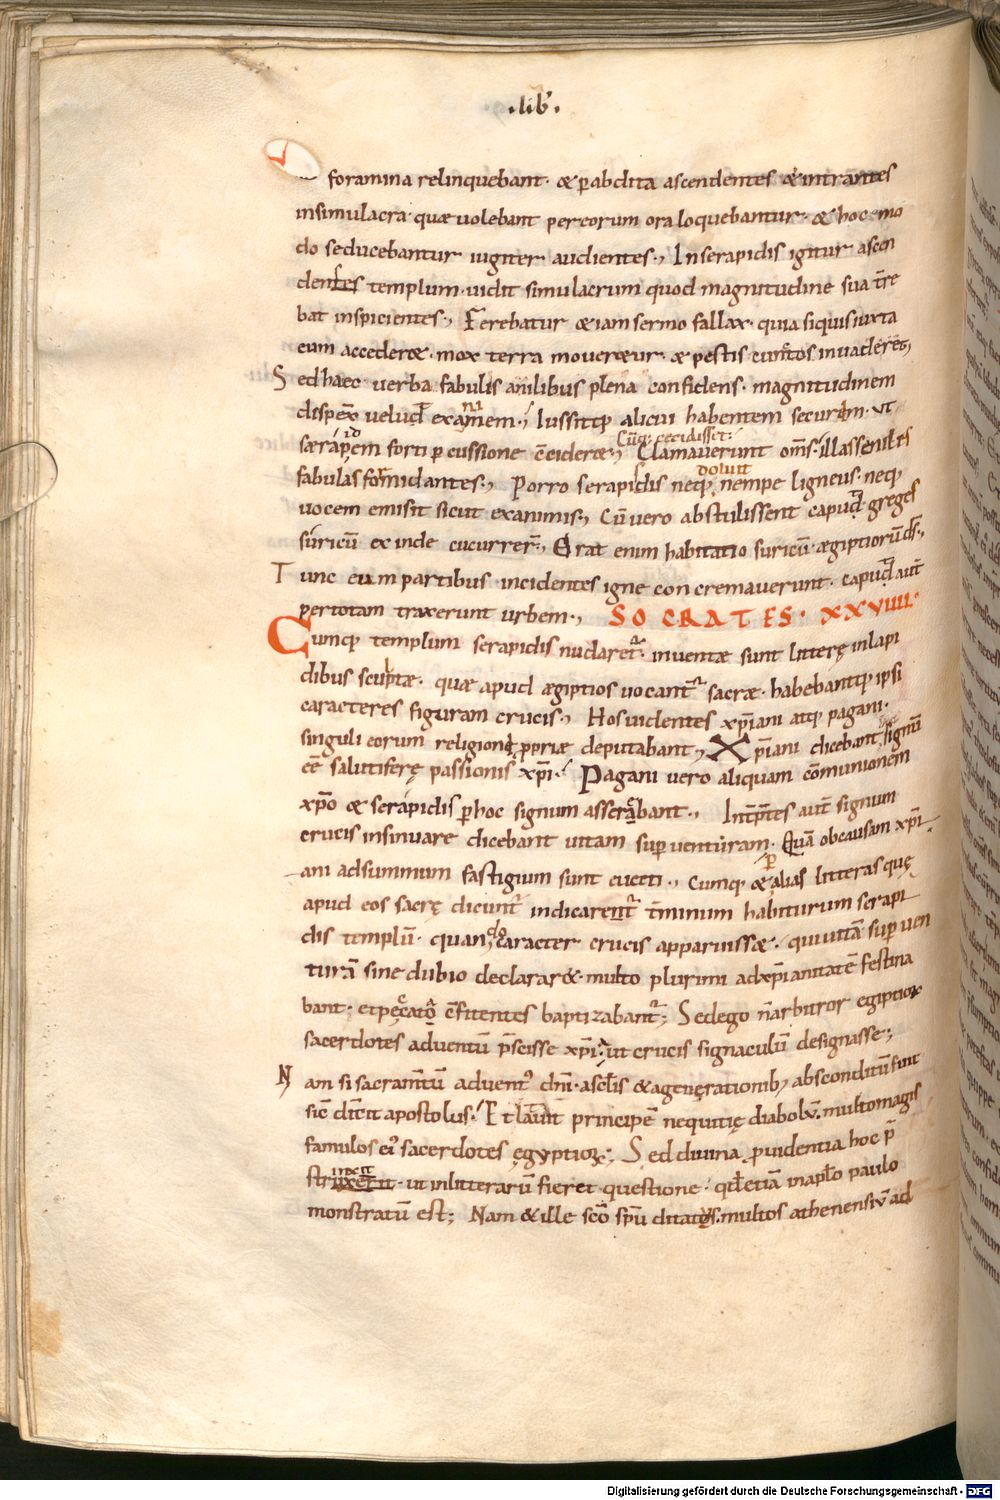 ·lib̄·
foramina relinquebant· & p̱abdita ascendentes & intrantes
insimulacra quæ volebant pereorum ora loquebantur· & hoc mo
do seducebantur iugiter audientes., Inserapidis igitur ascen
dentes templum· uidit simulacrum quod magnitudine sua t̄re
bat inspicientes., Ferebatur &iam sermo fallax· quia siquis iuxta
eum acceder&· mox terra mouer&ur· & pestis cunctos inuaderet,
Sed haec verba fabulis anilibus plena confidens· magnitudinem
dispex̄ velud examinem., Iussitq; alicui habentem securim· vt
Cūq; cecidisset:
særapidem forti p̱cussione c̄cider&., Clamauerunt om̄s· illas seniles
doluit
fabulas formidantes., Porro serapidis neq; nempe ligneus· neq;
uocem emisit sicut exanimis., Cū vero abstulissent capud greges
suricū exinde cucurrer̄., Erat enim habitatio suricū ægiptiorū d̄s·,
Tunc eum partibus incidentes igne concremauerunt· capud aut̄
pertotam traxerunt urbem., SOCRATES· XXVIIII·
Cumq; templum serapidis nudaret̄· inuentæ sunt litterę inlapi
dibus sculptæ· quæ apud ægiptios uocant̄ sacræ· habebantq; ipsi
caracteres figuram crucis., Hos uidentes xp̄iani atq; pagani·
singuli eorum religioni p̱priæ deputabant., Xp̄iani dicebant signū
cē̄ salutiferę passionis xp̄i· Pagani vero aliquam cōmunionem
xp̄o & serapidis p̱hoc signum asserabant., Int̄p̄tes aut̄ signum
crucis insinuare dicebant uitam sup̱uenturam· Quā obcausam xp̄i
ani adsummum fastigium sunt euecti., Cumq; & p̱ alias litteras quę
apud eos sacrę dicunt̄ indicarent̄ t̄minum habiturum serapi
dis templū· quando caracter crucis apparuiss&· qui uitā sup̱uen
turā sine dubio declarar&· multo plurimi adxp̄ianitatē festina
bant· et peccatȧ c̄fitentes baptizabant̄; Sed ego n̄arbitror egiptior̄
sacerdotes aduentū p̄scisse xp̄i· ut crucis signaculū designasse;
Nam si sacramt̄ū aduent᾽ dn̄i· asecl̄is & agenerationib; absconditū fuit
sic̄ dicit apostolus· Et lauit principē nequitię diabolū· multomagis
famulos ei᾽ sacerdotes ęgyptior̄; Sed diuina p̱uidentia hoc p̄
inxit
struxerit· ut inlitterarū fieret questione· qd̄ etiā inapl̄o paulo
monstratū est; Nam & ille sc̄o sp̄u ditatus· multos atheniensiū ad
Digitalisierung gefördert durch die Deutsche Forschungsgemeinschaft - DFG